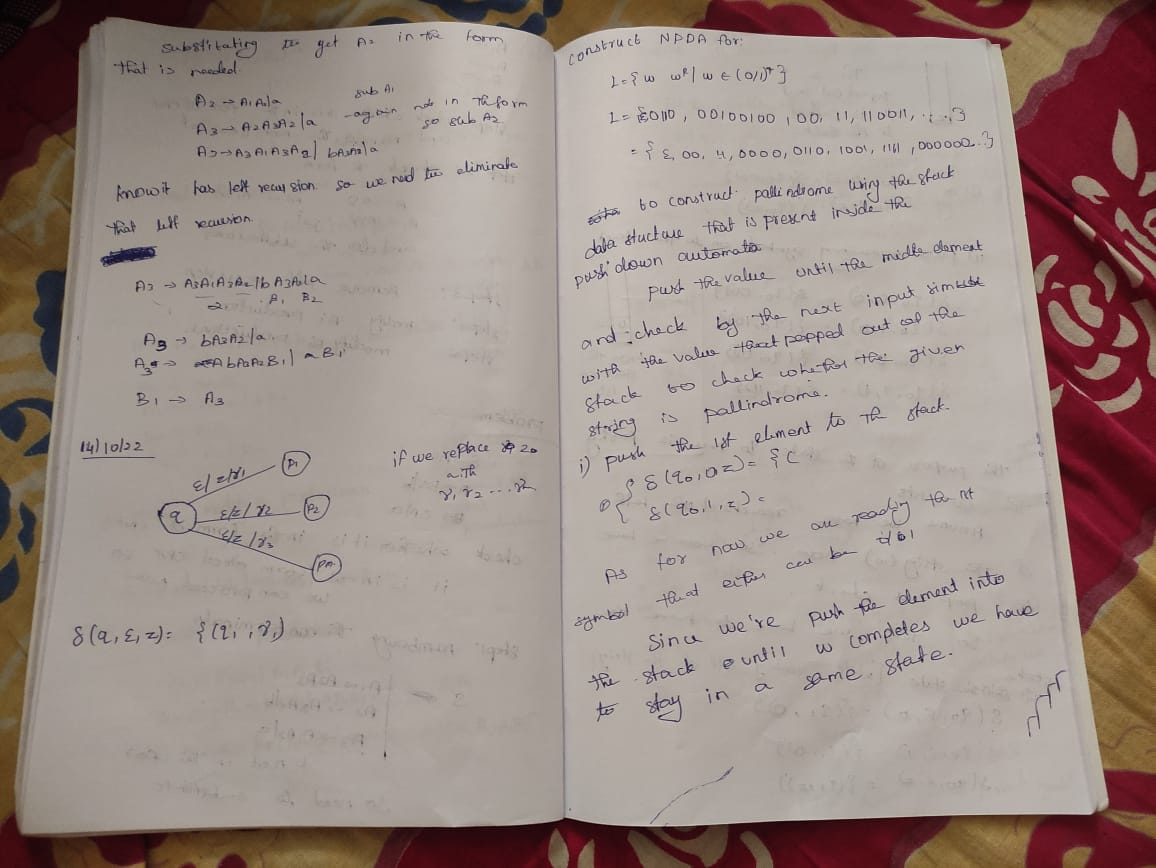 substitating to get A2 in the form
that is needed.
A2 → A1A2|a sub A1
A3 → A2A3A2|a -again not in Th form
so sub A2
A3→A3A1A3A2| bA3A2|a
know it has left recursion so we need to eliminate
that left recursion.
A3 → A3A1A3A2|bA3A2|a
2 B1 B2
A3 → bA3A2|a.
A3 → bA3A2B1| aB1
B1 → A3
14/10/22
ε/z/r1 P1
q ε/z/r2 P2
ε/z/r3 Pm
if we replace z0
with
r1 r2 ... r2
δ(q, ε, z)= {(q1, r1)
construct NPDA for:
L={w wR/ w ∈ (0/1)* }
L= {0110, 00100100, 00, 11, 110011, ...}
= { ε, 00, 11, 0000, 0110, 1001, 1111, 000000...}
to construct pallindrome wing the stack
data stucture that is present inside the
push down automata
push the value until the middle element
and check by the next input
with the value that popped out of the
stack to check whether the given
string is pallindrome.
i) push the 1st element to the stack.
{ δ(q0, 0, z)= {(
δ(q0, 1, z)=
As for now we are reading the 1st
symbol that either can be 0/1
Since we're push the element into
the stack until w completes we have
to stay in a same state.